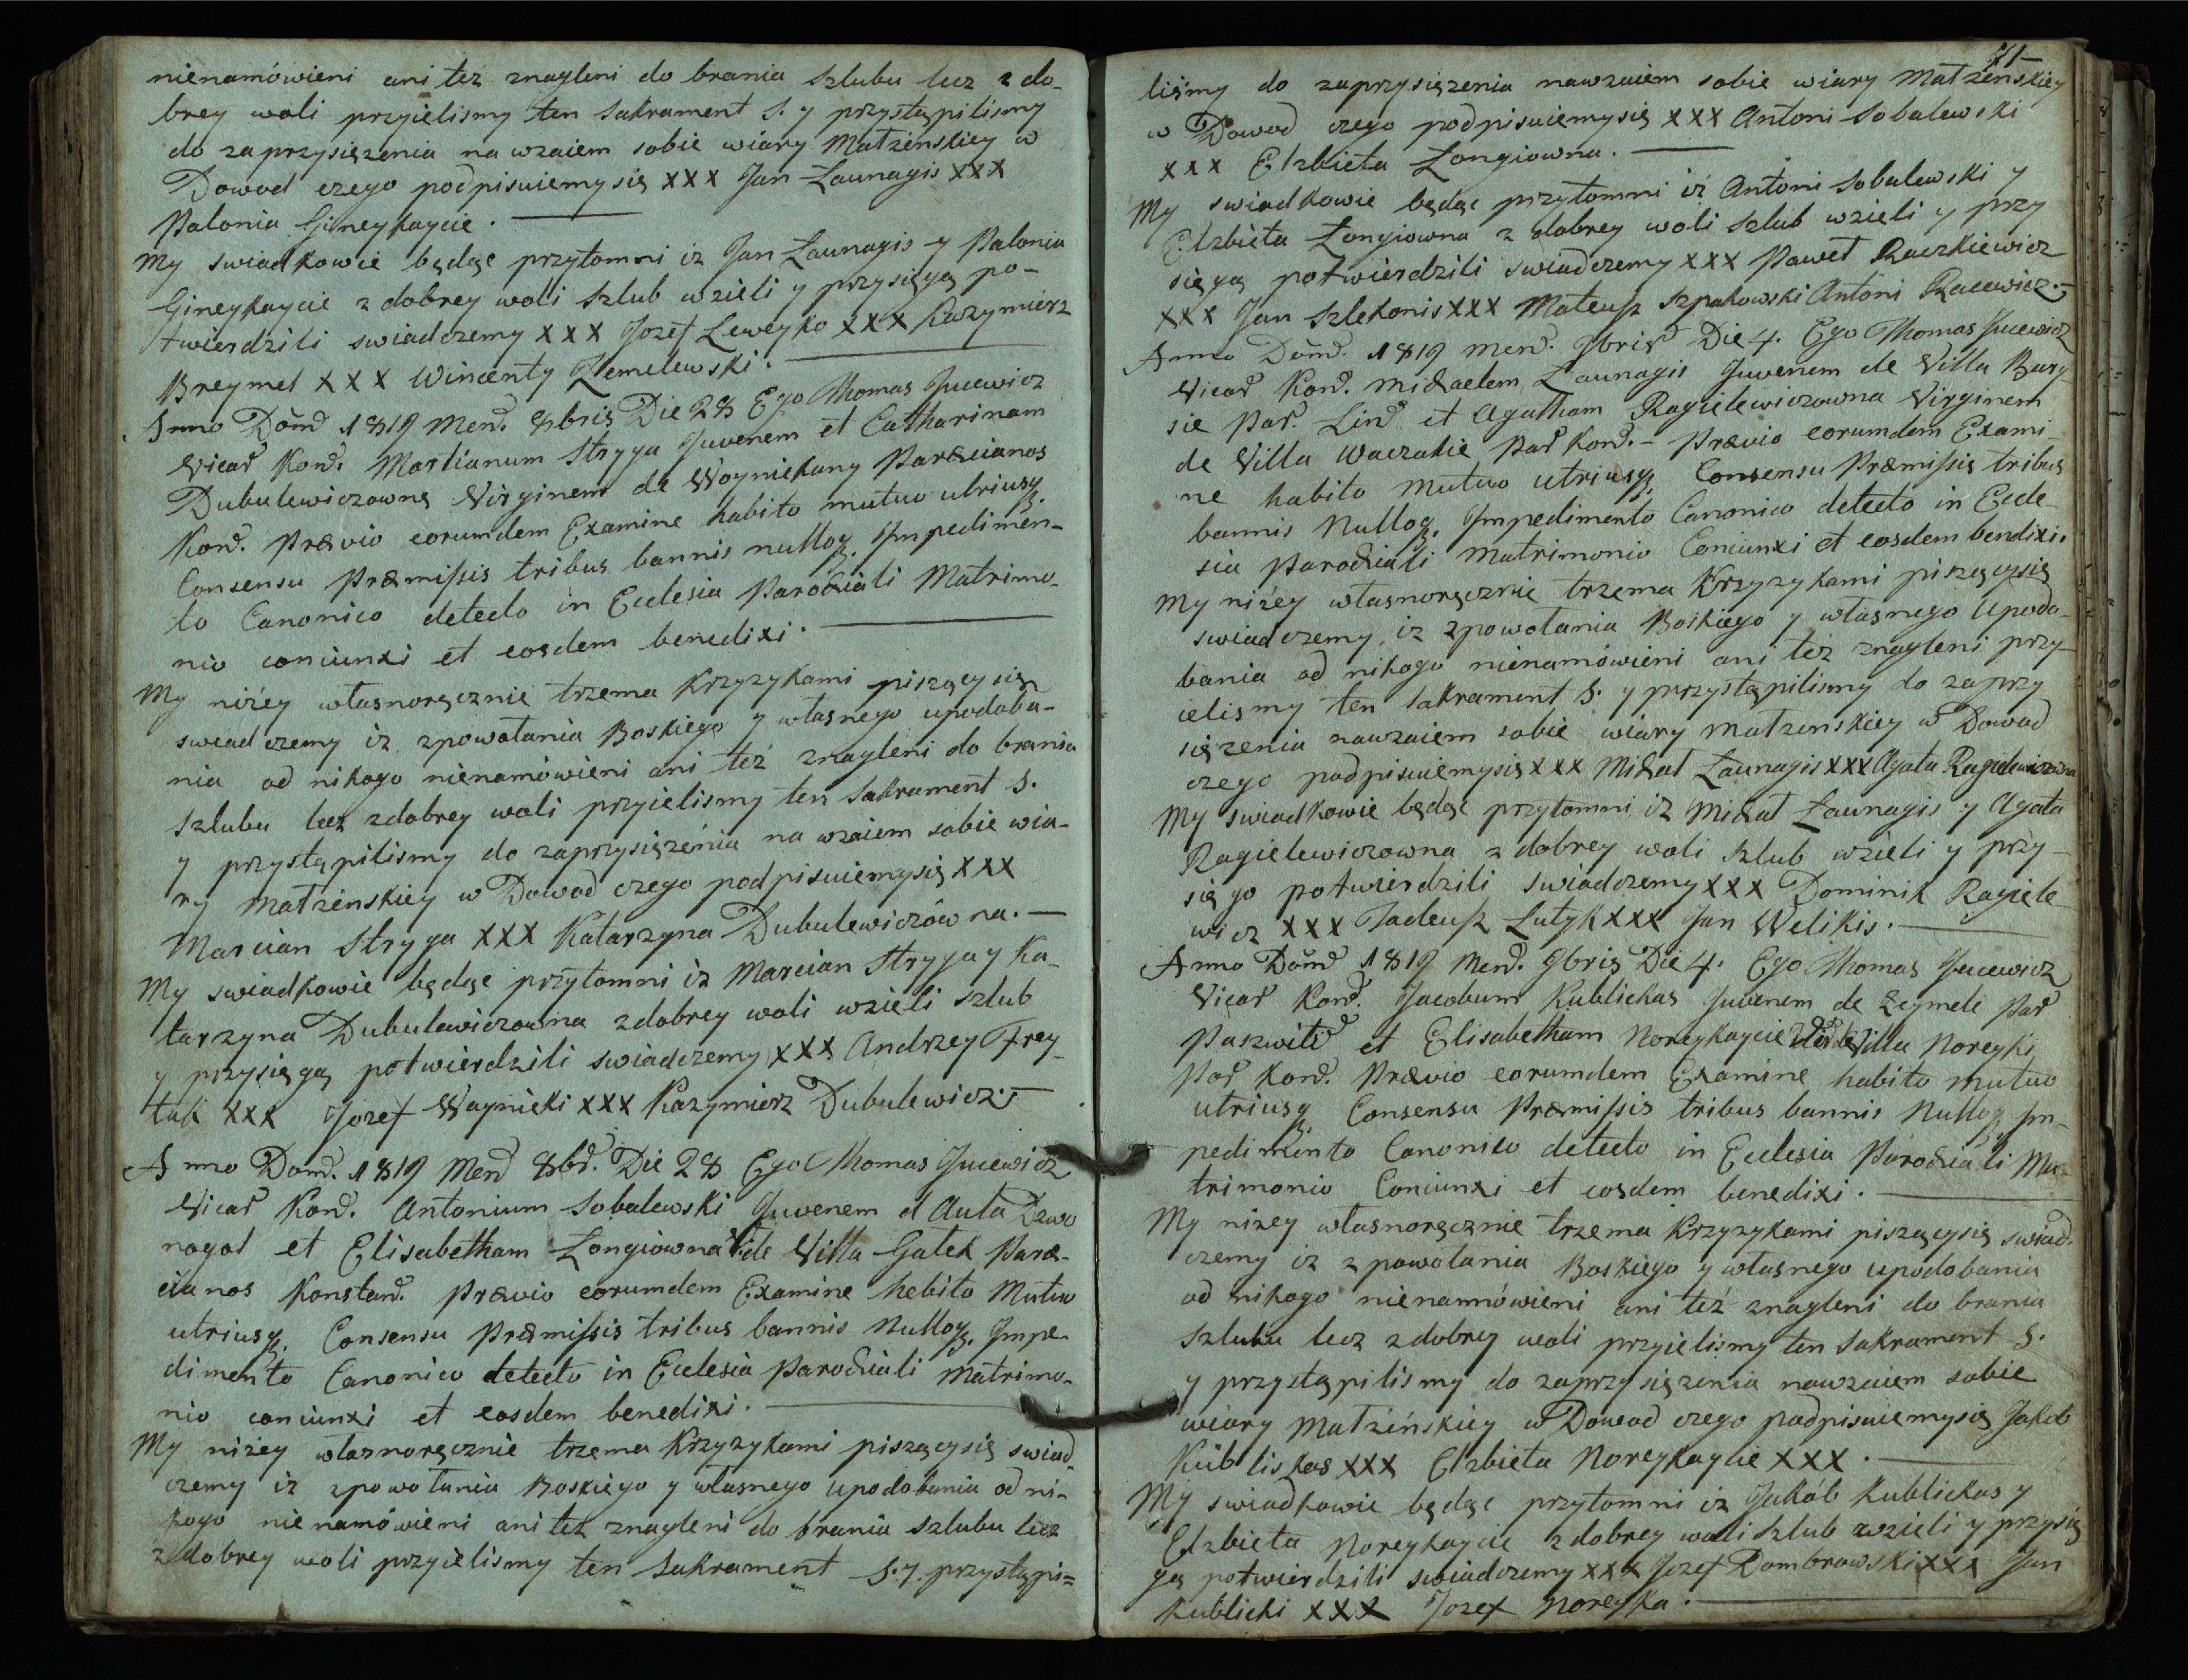 nienamówieni ani też znagleni do brania szlubu lecz z do-
brey woli przyielismy ten Sakrament S. y przystąpilismy
do zaprzysięzenia na wzaiem sobie wiary Małżenskiey w
Dowod czego podpisuiemysię XXX Jan Łaunagis XXX
Palonia Gineykaycie.
My swiadkowie będąc przytomni iz Jan Łaunagis y Palonia
Gineykaycie z dobrey woli szlub wzieli y przysięgą po-
twierdzili swiadczemy XXX Jozef Leweyko XXX Kazymierz
Breymel XXX Wincenty Zemelewski.
Anno Domd 1819 Mend. 8bris Die 28 Ego Thomas Jucewicz
Vicar Kond. Martianum Stryga Juvenem et Catharinam
Dubulewiczowną Virginem de Woyniekuny Paræcianos
Kond. Prævio eorumdem Examine habito mutuo utriusq.
Consensu Præmissis tribus bannis nulloq. Impedimen-
to Canonico detecto in Ecclesia Parochiali Matrimo-
nio coniunxi et eosdem benedixi.
My niźey własnoręcznie trzema Krzyzykami piszący się
swiadczemy iz zpowołania Boskiego y własnego upodoba-
nia od nikogo nienamówieni ani też znagleni do brania
szlubu lecz zdobrey woli przyielismy ten Sakrament S.
y przystąpilismy do zaprzysięzenia na wzaiem sobie wia-
ry Małżenskiey w Dowod czego podpisuiemysię XXX
Marcian Stryga XXX Katarzyna Dubulewiczówna.
My swiadkowie będąc przytomni iz Marcian Stryga y Ka-
tarzyna Dubulewiczowna zdobrey woli wzieli szlub
y przysięgą potwierdzili swiadczemy XXX Andrzey Frey-
tak XXX Jozef Waynicki XXX Kazymierz Dubulewicz.
Anno Domd. 1819 Mend 8bd. Die 28 Ego Thomas Jucewicz
Vicar Kond. Antonium Sobalewski Juvenem d Aula Dzwo
nogol et Elisabetham Łongiowna V de Villa Gałek Paræ-
cianos Konstand. Prævio eorumdem Examine hebito Mutuo
utriusq. Consensu Præmissis tribus bannis Nulloq. Impe-
dimento Canonico detecto in Ecclesia Parochiali Matrimo-
nio coniunxi et eosdem benedixi.
My niżey własnoręcznie trzema Krzyzykami piszącysię swiad
czemy iz zpowołania Boskiego y własnego upodobania od ni-
kogo nienamówieni ani też znagleni do brania szlubu lecz
z dobrey woli przyielismy ten Sakrament S. y. przystąpi=
71
liśmy do zaprzysięzenia nawzaiem sobie wiary Małżenskiey
w Dowod czego podpisuiemysię XXX Antoni Sobalewski
XXX Elzbieta Łongiowna.
My swiadkowie będąc przytomni iż Antoni Sobulewski y
Elzbieta Łongiowna z dobrey woli szlub wzieli y przy
sięgą potwierdzili swiadczemy XXX Paweł Raczkiewicz
XXX Jan Szlekonis XXX Mateusz Szpakowski Antoni Racewicz.
Anno Domd. 1819 Mend. 9bris Die 4. Ego Thomas Jucewicz
Vicar Kond. Michaelem Launagis Juvenem de Villa Burg
sie Par. Lind. et Agatham Ragielewiczowna Virginem
de Villa Waczakie Par Kond. - Prævio eorumdem Exami-
ne habito mutuo utriusq. Consensu Præmissis tribus
bannis Nulloq. Impedimento Canonico detecto in Eccle-
sia Parochiali Matrimonio Coniunxi et eosdem bendixi.
My niżey własnoręcznie trzema Krzyzykami piszącysię
swiadczemy iz zpowołania Boskiego y własnego Upodo-
bania od nikogo nienamówieni ani też znagleni przy-
ielismy ten Sakrament S. y przystąpilismy do zaprzy
sięzenia nawzaiem sobie wiary Małzenskiey w Dowod
czego podpisuiemysię XXX Michał Łaunagis XXX Agata Ragielewiczowna
My swiadkowie będąc przytomni iz Michał Łaunagis y Agata
Ragielewiczowna z dobrey woli szlub wzieli y przy-
sięgo potwierdzili swiadczemy XXX Dominik Ragiele
wicz XXX Tadeusz Lutyk XXX Jan Welikis.
Anno Domd 1819 Mend. 9bris Die 4. Ego Thomas Jucewicz
Vicar Kond. Jacobum Kublickas Juvenem de Zeymele Par
Paszwitd et Elisabetham Noreykaycie Vir de Villa Noreyki
Par Kond. Prævio eorumdem Examine habito mutuo
utriusq. Consensu Præmissis tribus bannis Nulloq Im-
pedimento Canonico detecto in Ecclesia Parochiali Ma-
trimonio Coniunxi et eosdem benedixi.
My nizey własnoręcznie trzema Krzyzykami piszącysię swiad-
czemy iz zpowołania Boskiego y własnego upodobania
od nikogo nienamówieni ani też znagleni do brania
szlubu lecz zdobrey woli przyielismy ten Sakrament S.
y przystąpilismy do zaprzysięzenia nawzaiem sobie
wiary Małżeńskiey w Dowod czego podpisuiemysię Jakób
Kubliskas XXX Elzbieta Noreykaycie XXX.
My swiadkowie będąc przytomni iz Jakób Kublickas y
Elzbieta Noreykaycie z dobrey woli szlub wzieli y przysię
gą potwierdzili swiadczemy XXX Jozef Dombrowski XXX Jan
Kublicki XXX Jozef Noreyka.